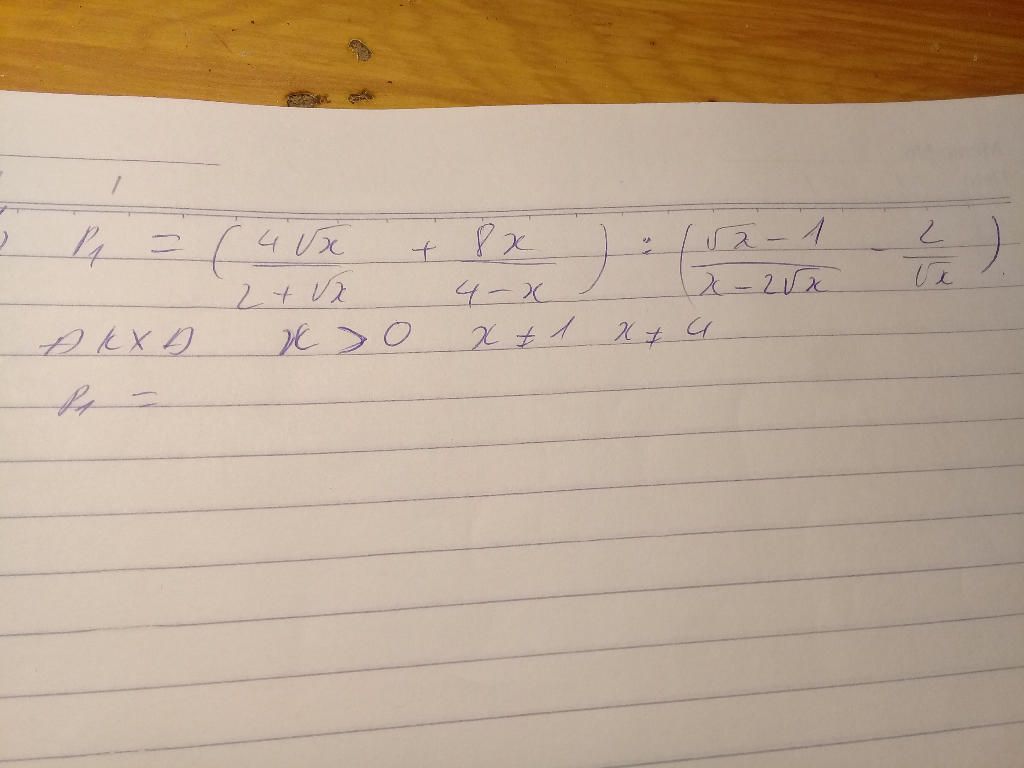 ) P₁ = (4√x / 2+√x + 8x / 4-x) : (√x-1 / x-2√x - 2 / √x)
ĐKXĐ x > 0 x ≠ 1 x ≠ 4
P₁ =